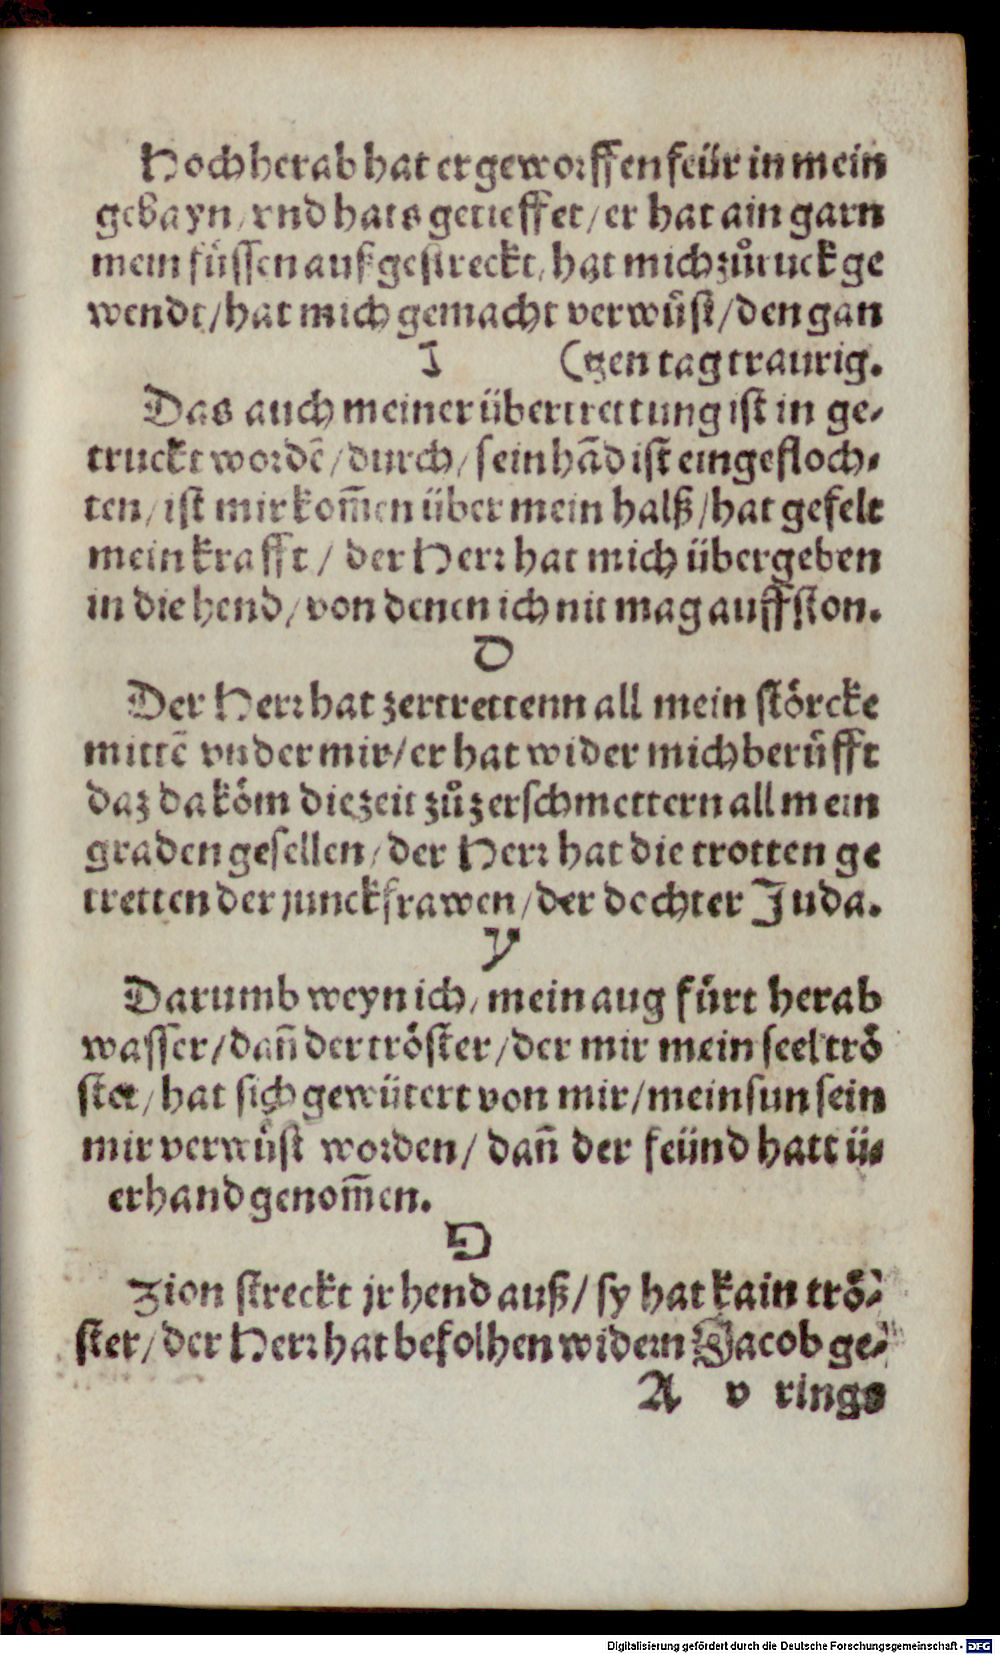 Hoch herab hat er geworffen feür in mein
gebayn/ vnd hats getieffet/ er hat ain garn
mein füssen außgestreckt/ hat mich zůruck ge
wendt/ hat mich gemacht verwüst/ den gan
נ (tzen tag traurig.
Das auch meiner übertrettung ist in ge-
truckt wordē/ durch/ sein hād ist eingefloch-
ten/ ist mir kom̄en über mein halß/ hat gefelt
mein krafft/ der Herr hat mich übergeben
in die hend/ von denen ich nit mag auffston.
ס
Der Herr hat zertrettenn all mein störcke
mittē vnder mir/ er hat wider mich berüfft
daz da köm die zeit zů zerschmettern all mein
graden gesellen/ der Herr hat die trotten ge
tretten der junckfrawen/ der dochter Juda.
ע
Darumb weyn ich/ mein aug fürt herab
wasser/ dañ der tröster/ der mir mein seel trö
stet/ hat sich gewütert von mir/ mein sun sein
mir verwüst worden/ dañ der feünd hatt ü-
erhand genom̄en.
פ
Zion streckt jr hend auß/ sy hat kain trö-
ster/ der Herr hat befolhen widern Jacob ge-
A v rings
Digitalisierung gefördert durch die Deutsche Forschungsgemeinschaft - DFG